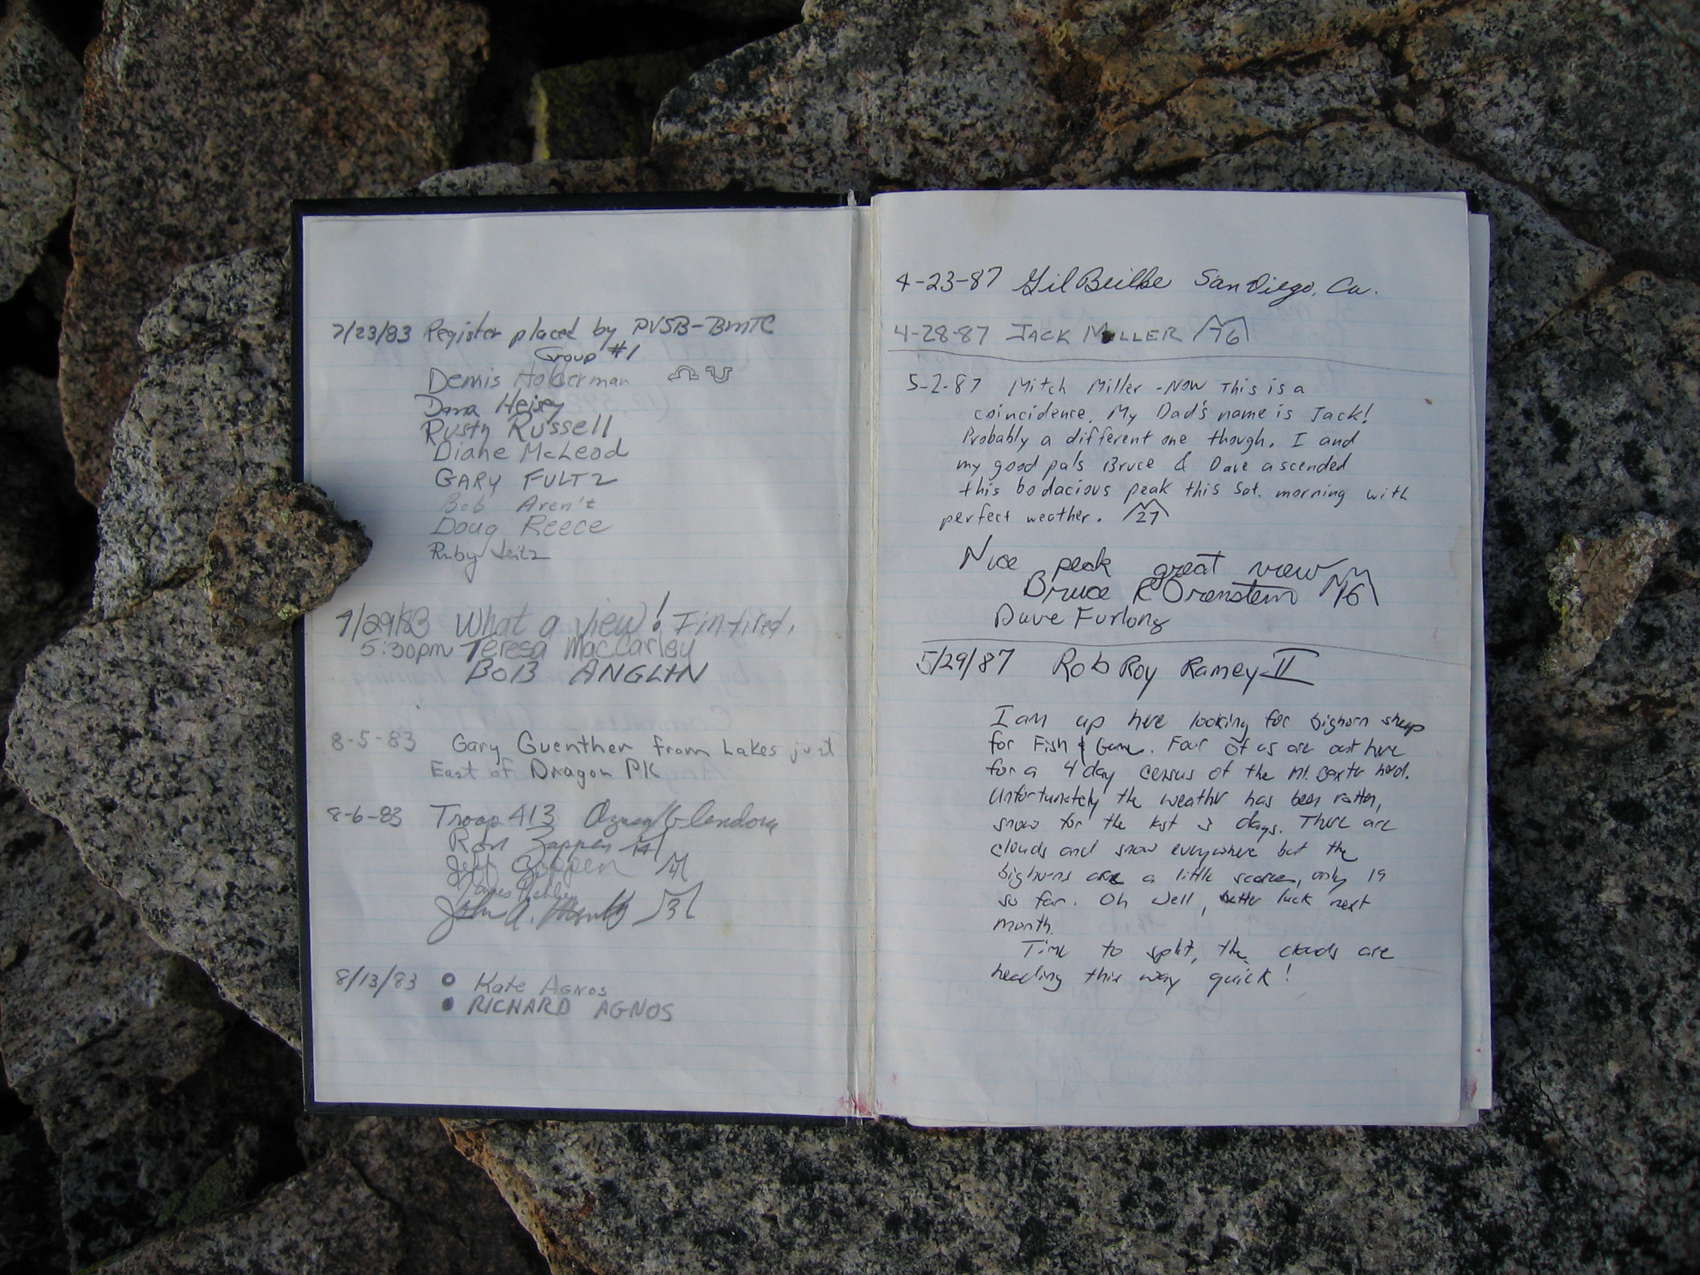 7/23/83 Register placed by PVSB-BMTC
Group #1
Dennis Holcerman
Dana Heisy
Rusty Russell
Diane McLeod
GARY FULTZ
Bob Aren't
Doug Reece
Ruby
7/29/83 What a view! I'm tired,
5:30pm Teresa MacCarley
BOB ANGLIN
8-5-83 Gary Guenther from Lakes just
East of Dragon PK
8-6-83 Troop 413 Azusa/Glendora
Ron Zappen 14
Jeff Zappen 14
James
John A. 13
8/13/83 Kate Agnos
RICHARD AGNOS
4-23-87 Gil Beilke San Diego, Ca.
4-28-87 JACK MILLER 76
5-2-87 Mitch Miller - Now This is a
coincidence. My Dad's name is Jack!
Probably a different one though. I and
my good pals Bruce & Dave ascended
this bodacious peak this Sat. morning with
perfect weather. 27
Nice peak great view
Bruce R Orenstein 16
Dave Furlong
5/29/87 Rob Roy Ramey II
I am up here looking for bighorn sheep
for Fish & Game. Four of us are out here
for a 4 day census of the Mt. Baxter herd.
Unfortunately the weather has been rotten,
snow for the last 3 days. There are
clouds and snow everywhere but the
bighorns are a little scarce, only 19
so far. Oh well, better luck next
month.
Time to split, the clouds are
heading this way quick!